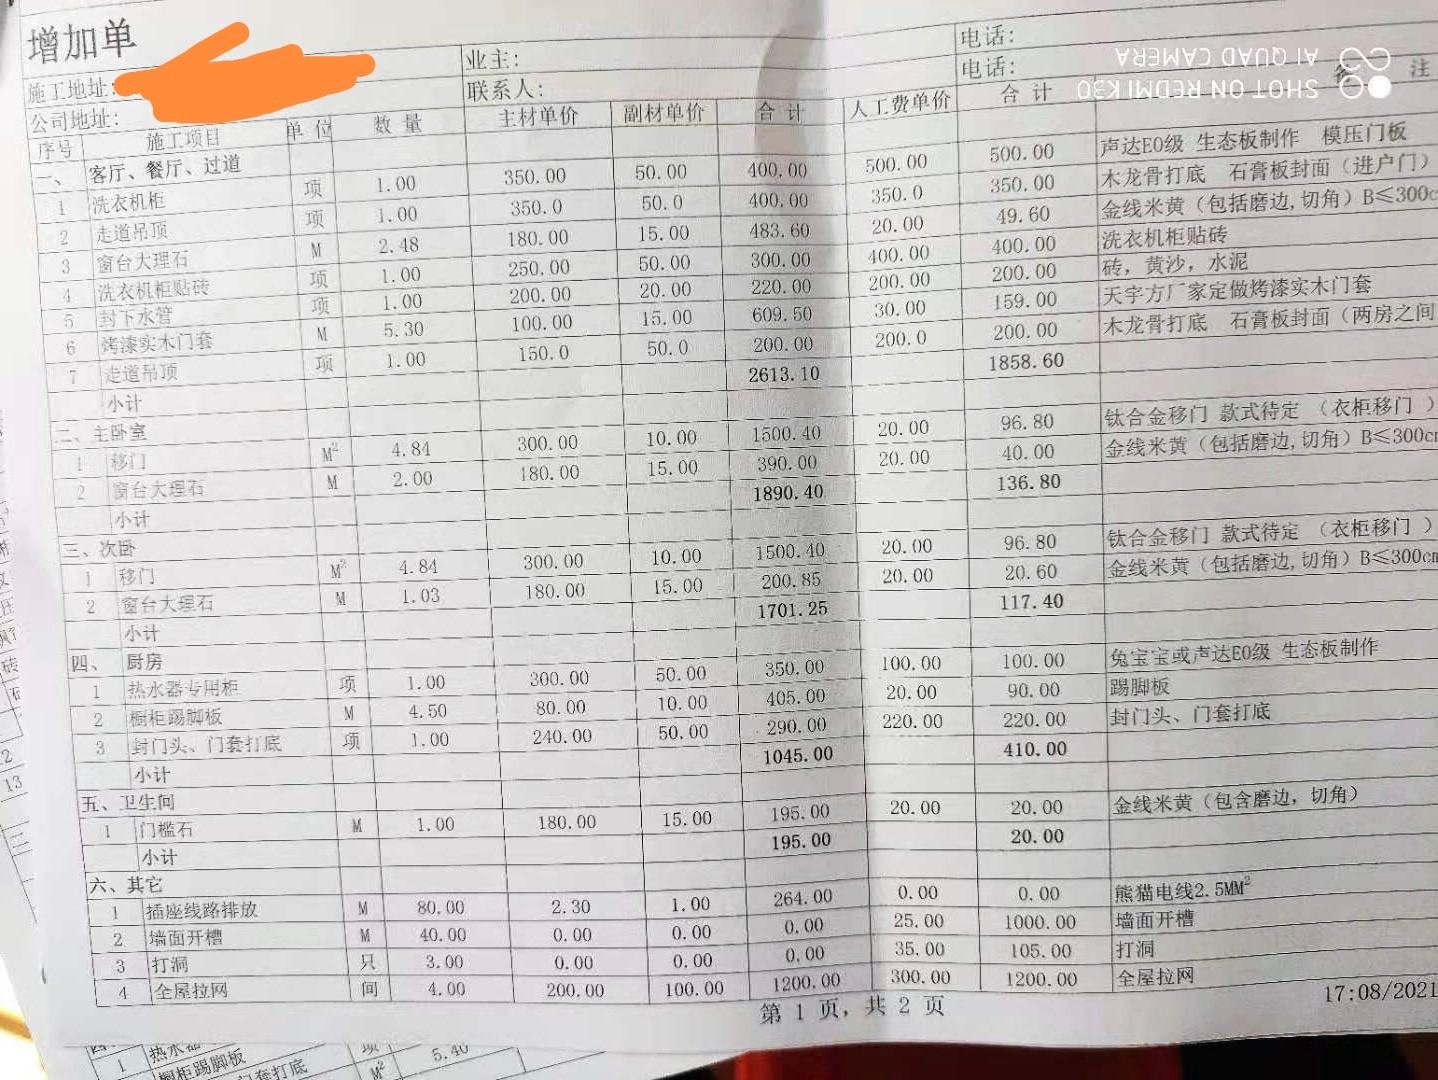 增加单
施工地址:
业主:
电话:
公司地址:
联系人:
电话:
SHOT ON REDMI K30
AI QUAD CAMERA
序号 施工项目 单位 数量 主材单价 副材单价 合计 人工费单价 合计 备注
一、 客厅、餐厅、过道
1 洗衣机柜 项 1.00 350.00 50.00 400.00 500.00 500.00 声达E0级 生态板制作 模压门板
2 走道吊顶 项 1.00 350.0 50.0 400.00 350.0 350.00 木龙骨打底 石膏板封面（进户门）
3 窗台大理石 M 2.48 180.00 15.00 483.60 20.00 49.60 金线米黄（包括磨边,切角）B≤300c
4 洗衣机柜贴砖 项 1.00 250.00 50.00 300.00 400.00 400.00 洗衣机柜贴砖
5 封下水管 项 1.00 200.00 20.00 220.00 200.00 200.00 砖，黄沙，水泥
6 烤漆实木门套 M 5.30 100.00 15.00 609.50 30.00 159.00 天宇方厂家定做烤漆实木门套
7 走道吊顶 项 1.00 150.0 50.0 200.00 200.0 200.00 木龙骨打底 石膏板封面（两房之间
小计 2613.10 1858.60
二、主卧室
1 移门 M² 4.84 300.00 10.00 1500.40 20.00 96.80 钛合金移门 款式待定 （衣柜移门 ）
2 窗台大理石 M 2.00 180.00 15.00 390.00 20.00 40.00 金线米黄（包括磨边,切角）B≤300cm
小计 1890.40 136.80
三、次卧
1 移门 M² 4.84 300.00 10.00 1500.40 20.00 96.80 钛合金移门 款式待定 （衣柜移门 ）
2 窗台大理石 M 1.03 180.00 15.00 200.85 20.00 20.60 金线米黄（包括磨边,切角）B≤300cm
小计 1701.25 117.40
四、 厨房
1 热水器专用柜 项 1.00 300.00 50.00 350.00 100.00 100.00 兔宝宝或声达E0级 生态板制作
2 橱柜踢脚板 M 4.50 80.00 10.00 405.00 20.00 90.00 踢脚板
3 封门头、门套打底 项 1.00 240.00 50.00 290.00 220.00 220.00 封门头、门套打底
小计 1045.00 410.00
五、卫生间
1 门槛石 M 1.00 180.00 15.00 195.00 20.00 20.00 金线米黄（包含磨边，切角）
小计 195.00 20.00
六、其它
1 插座线路排放 M 80.00 2.30 1.00 264.00 0.00 0.00 熊猫电线2.5MM²
2 墙面开槽 M 40.00 0.00 0.00 0.00 25.00 1000.00 墙面开槽
3 打洞 只 3.00 0.00 0.00 0.00 35.00 105.00 打洞
4 全屋拉网 间 4.00 200.00 100.00 1200.00 300.00 1200.00 全屋拉网
第 1 页，共 2 页
17:08/2021
1 热水器 项
橱柜踢脚板 M² 5.40
门套打底
砖
12
13